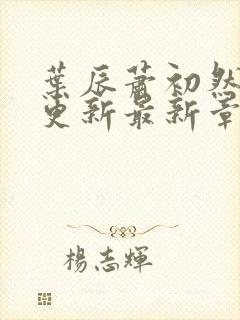 葉辰蕭初然
更新最新章
楊志輝